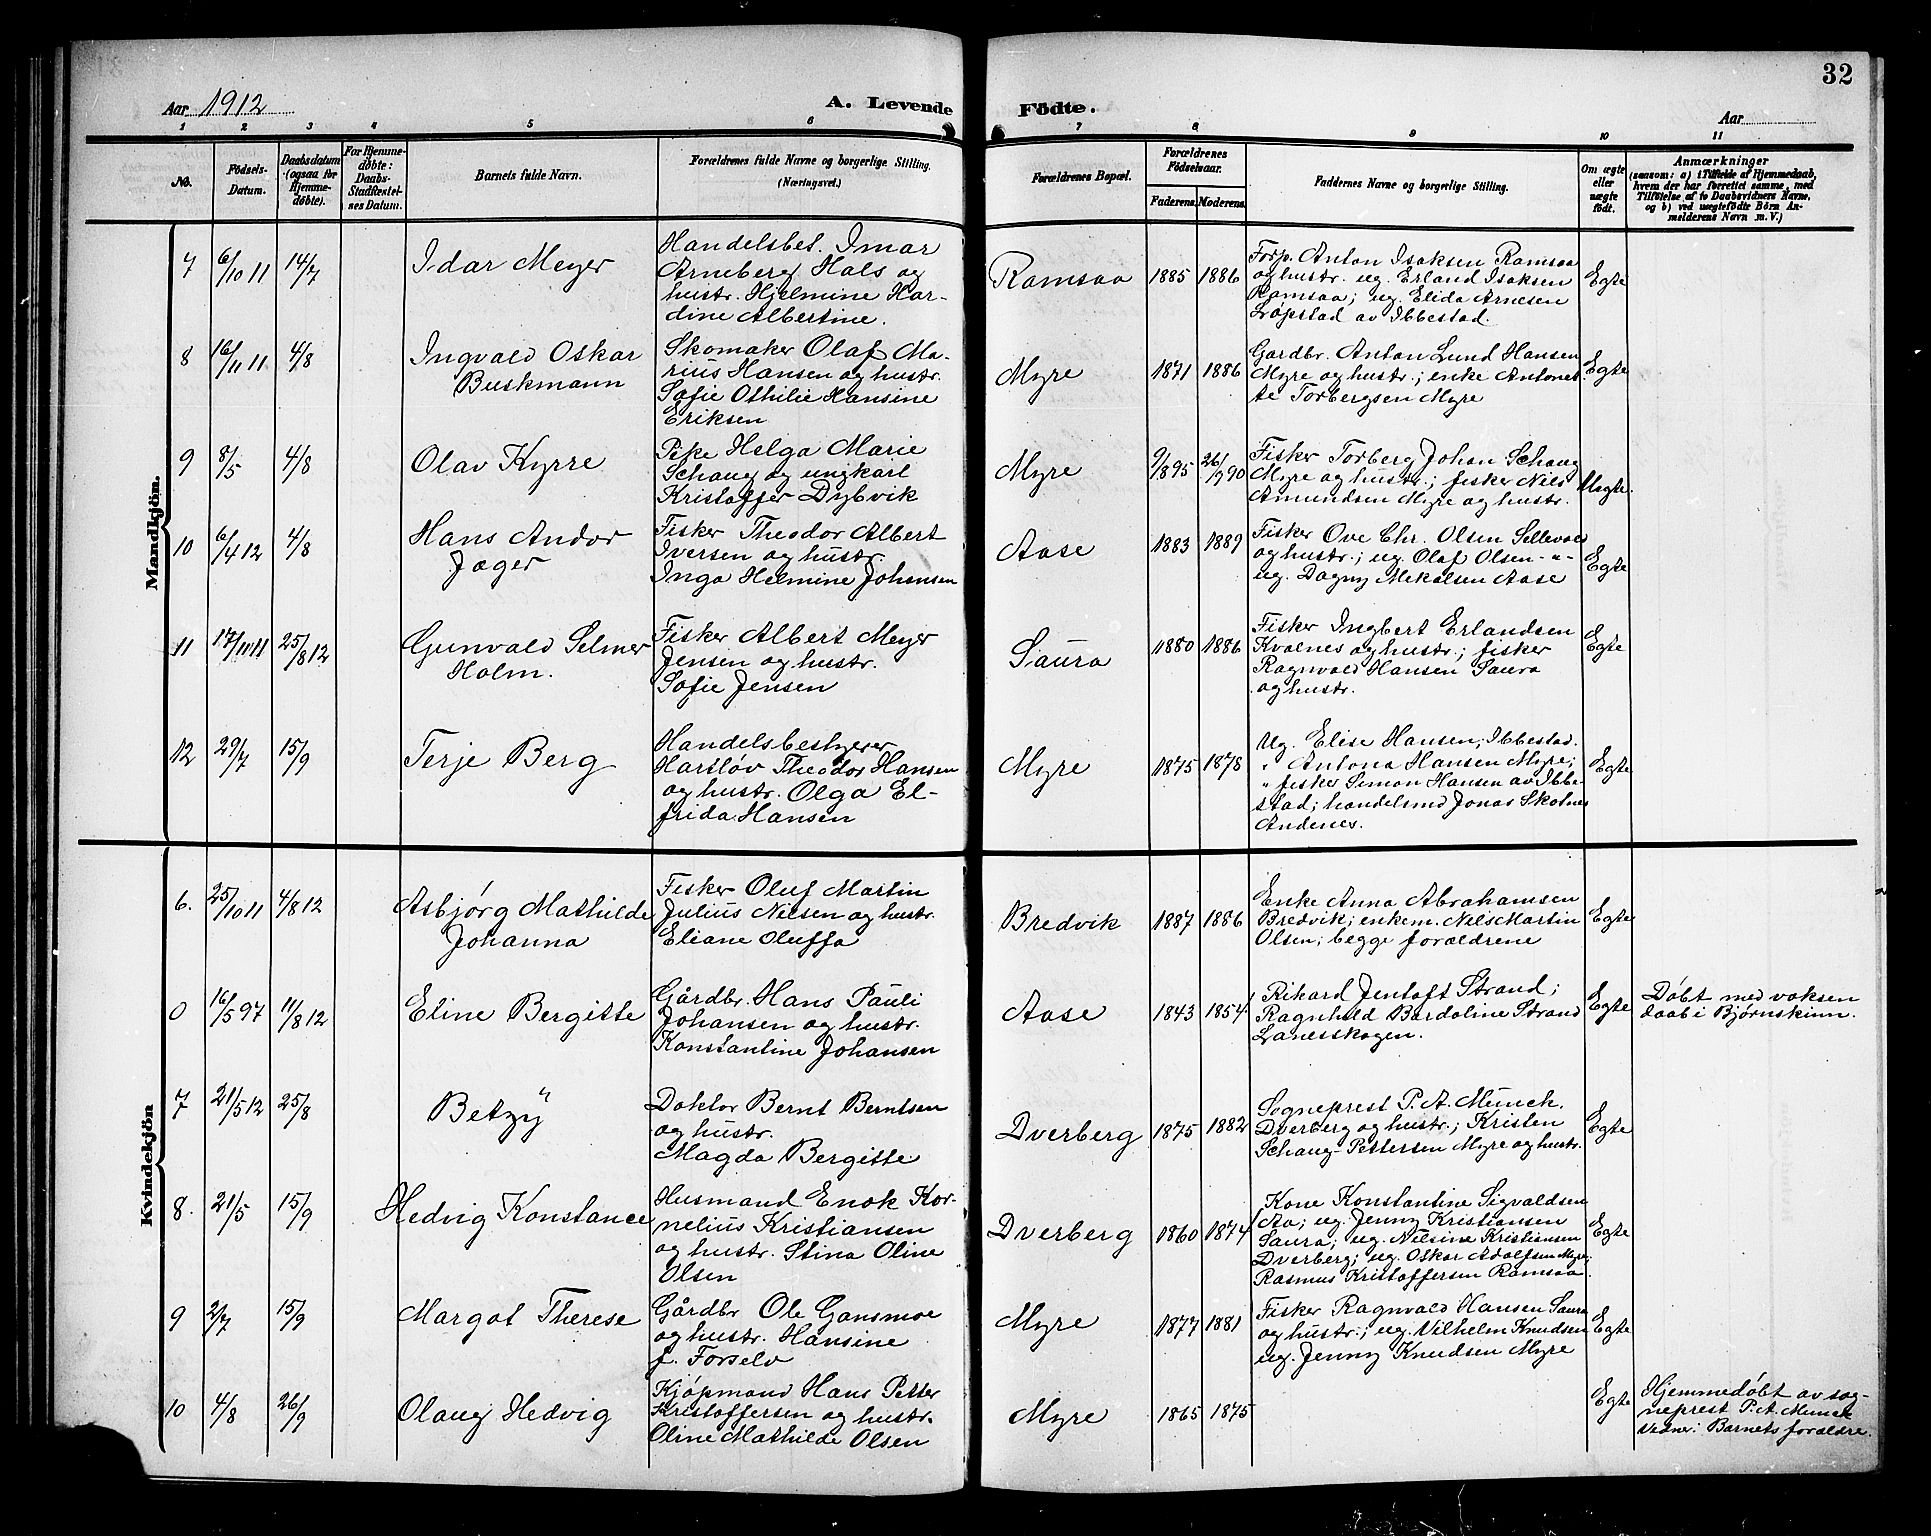 32
Aar 1912
A. Levende Födte.
Aar
1 2 3 4 5 6 7 8 9 10 11
No.
Födsels-Datum.
Daabsdatum (ogsaa for Hjemmedøbte).
For Hjemmedøbte: Daabs-Stadfæstelses Datum.
Barnets fulde Navn.
Forældrenes fulde Navne og borgerlige Stilling.
(Næringsvei.)
Forældrenes Bopæl.
Forældrenes Födselsaar.
Faderens. Moderens.
Faddernes Navne og borgerlige Stilling.
Om ægte eller uægte født.
Anmærkninger
(saasom: a) i Tilfælde af Hjemmedaab,
hvem der har forrettet samme, med
Tilföielse af to Daabsvidners Navne,
og b) ved uægtefödte Börn An-
melderens Navn m. V.)
Mandkjön.
7 6/10 11 14/7 Idar Meyer
Handelsbet. Imar
Arneberg Hals og
hustr. Hjelmine Har-
dine Albertine.
Ramsaa 1885 1886
Forp. Anton Isaksen Ramsaa
og hustr. ug. Erland Isaksen
Ramsaa; ug. Elida Arnesen
Løpstad av Ibbestad.
Egte
8 16/11 11 4/8 Ingvald Oskar
Buskmann
Skomaker Olaf Ma-
rius Hansen og hustr.
Sofie Othilie Hansine
Eriksen
Myre 1871 1886
Gardbr. Anton Lund Hansen
Myre og hustr.; enke Antonet-
te Torbergsen Myre
Egte
9 8/5 4/8 Olav Kyrre
Pike Helga Marie
Schaug og ungkarl
Kristoffer Dybvik
Myre 9/8 95 26/9 90
Fisker Torberg Johan Schaug
Myre og hustr.; fisker Nils
Amundsen Myre og hustr.
Uegte.
10 6/4 12 4/8 Hans Andor
Jæger
Fisker Theodor Albert
Iversen og hustr.
Inga Helmine Johansen
Aase 1883 1889
Fisker Ove Chr. Olsen Sellevold
og hustr.; ug. Olaf Olsen -"-
ug. Dagny Mikalsen Aase
Egte
11 17/11 11 25/8 12 Gunvald Selmer
Holm.
Fisker Albert Meyer
Jensen og hustr.
Sofie Jensen
Saura 1880 1886
Fisker Ingbert Erlandsen
Kvalnes og hustr.; fisker
Ragnvald Hansen Saura
og hustr.
Egte
12 29/7 15/9 Terje Berg
Handelsbestyrer
Hartløv Theodor Hansen
og hustr. Olga El-
frida Hansen
Myre 1875 1878
Ug. Elise Hansen, Ibbestad.
" Antona Hansen Myre;
" fisker Simon Hansen av Ibbe-
stad; handelsmd Jonas Skolnes
Andenes.
Egte
Kvindekjön
6. 25/10 11 4/8 12 Asbjørg Mathilde
Johanna
Fisker Oluf Martin
Julius Nilsen og hustr.
Eliane Oluffa
Bredvik 1887 1886
Enke Anna Abrahamsen
Bredvik; enkem. Nils Martin
Olsen; begge foræeldrene
Egte
0 16/5 97 11/8 12 Eline Bergitte
Gårdbr. Hans Pauli
Johansen og hustr.
Konstantine Johansen
Aase 1843 1854
Rikard Jentoft Strand;
Ragnhild Bardoline Strand
Lanesskogen.
Egte
Døbt med voksen
daab i Bjørnskinn.
7 21/5 12 25/8 Betzy
Doktor Bernt Berntsen
og hustr.
Magda Bergitte
Dverberg 1875 1882
Sogneprest P. A. Munck.
Dverberg og hustr.; Kristen
Schaug-Pettersen Myre og hustr.
Egte
8. 21/5 15/9 Hedvig Konstance
Husmand Enok Kor-
nelius Kristiansen
og hustr. Stina Oline
Olsen
Dverberg 1860 1874
Kone Konstantine Sigvaldsen
Aa; ug. Jenny Kristiansen
Saura; ug. Nilsine Kristiansen
Dverberg; ug. Oskar Adolfsen Myre;
Rasmus Kristoffersen Ramsaa.
Egte
9 2/7 15/9 Margot Therese
Gårdbr Ole Gansmoe
og hustr. Hansine
f. Forselv
Myre 1877 1881
Fisker Ragnvald Hansen Saura
og hustr.; ug. Vilhelm Knudsen
ug. Jenny Knudsen Myre
Egte
10 4/8 26/9 Olaug Hedvig
Kjøpmand Hans Petter
Kristoffersen og hustr.
Oline Mathilde Olsen
Myre 1865 1875
Egte
Hjemmedøbt av sog-
neprest P. A. Munck
Vidner: Barnets forældre.